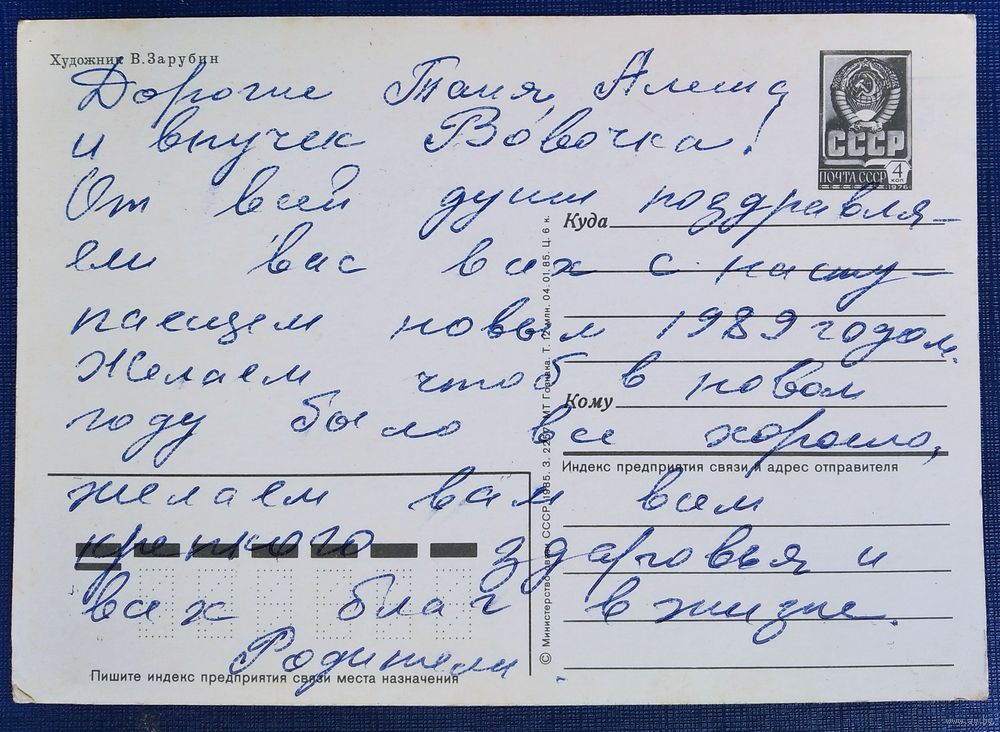 Художник В.Зарубин
Дорогие Таня, Алеша
и внучек Вовочка!
СССР
ПОЧТА СССР 4 коп
1976
От всей души поздравля-
Куда
ем вас всех с насту-
пающем новым 1989 годом.
Желаем, чтоб в новом
Кому
году было все хорошо,
Индекс предприятия связи и адрес отправителя
желаем вам всем
крепкого здаровья и
всех благ в жизне.
Родители.
Пишите индекс предприятия связи места назначения
© Министерство связи СССР. 1985. З. 04.01.85. Ц. 6 к.